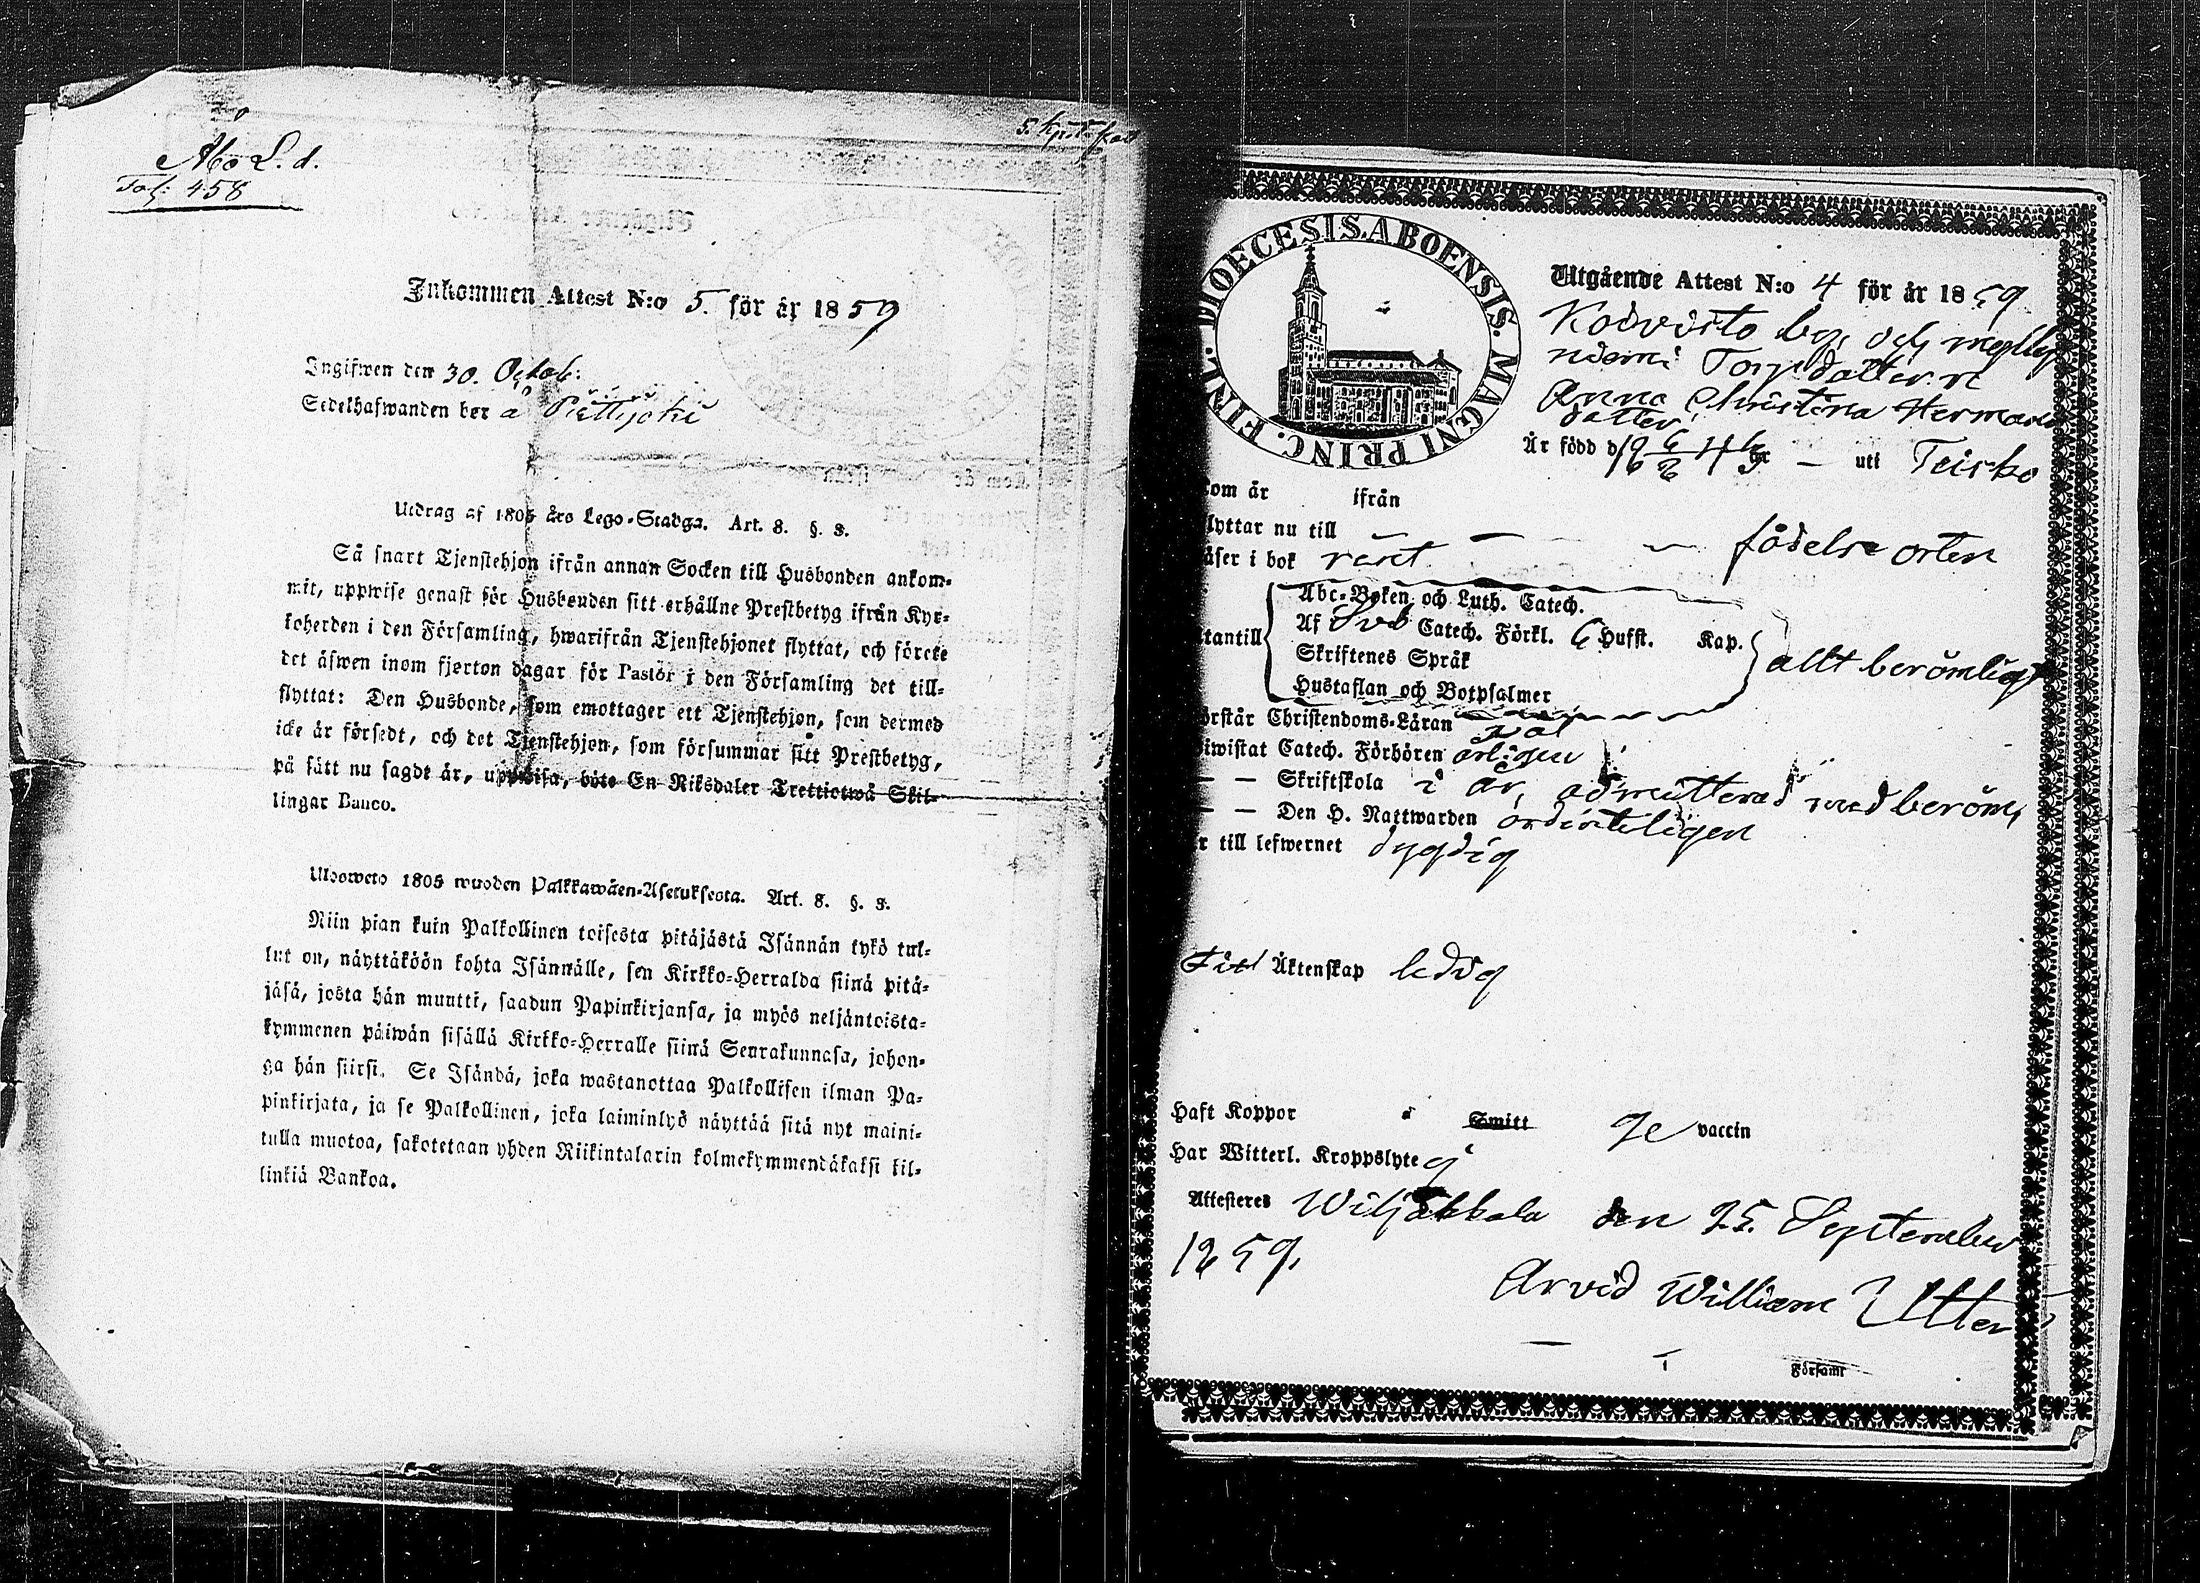 Åbo L. d.
Fol: 458
Inkommen Attest N:o 5. för år 1859
Ingifwen den 30. Octob:
Sedelhafwanden bor å
Utdrag af 1805 års Lego-Stadga. Art. 8. §. 3.
Så snart Tjenstehjon ifrån annan Socken till Husbonden ankom-
mit, uppwise genast för Husbonden sitt erhållne Prestbetyg ifrån Kyr-
koherden i den Församling, hwarifrån Tjenstehjonet flyttat, och förete
det äfwen inom fjorton dagar för Pastor i den Församling det till-
flyttat: Den Husbonde, som emottager ett Tjenstehjon, som dermed
icke är försedt, och det Tjenstehjon, som försummar sitt Prestbetyg,
på sätt nu sagdt är, uppwisa, böte En Riksdaler Trettiotwå Skil-
lingar Banco.
Ulosweto 1805 wuoden Palkkawäen-Asetuksesta. Art. 8. §. 3.
Niin pian kuin Palkollinen toisesta pitäjästä Isännän tykö tul-
lut on, näyttäköön kohta Isännälle, sen Kirkko-Herralda siinä pitä-
jäsä, josta hän muutti, saadun Papinkirjansa, ja myös neljäntoista-
kymmenen päiwän sisällä Kirkko-Herralle siinä Seurakunnasa, johon-
ga hän siirsi. Se Isändä, joka wastanottaa Palkollisen ilman Pa-
pinkirjata, ja se Palkollinen, joka laiminlyö näyttää sitä nyt maini-
tulla muotoa, sakotetaan yhden Riikintalarin kolmekymmendäkaksi kil-
linkiä Bankoa.
DIOECESIS. ABOENSIS. MAGNI PRINC. FINL.
Utgående Attest N:o 4 för år 1859
Koivisto by, och
Anna Christina Hermans
dotter
Är född d uti Teisko
kom år ifrån
flyttar nu till födelse orten
läser i bok rent
Abc-Boken och Luth. Catech.
Af Sveb Catech. Förkl. 6 Hufst. Kap.
utantill allt berömligt
Skriftenes Språk
Hustaflan och Botpsalmer
örstår Christendoms-Läran
iwistat Catech. Förhören årligen
— — Skriftskola i år, admitterad med beröm,
— — Den H. Nattwarden ordenteligen
r till lefwernet dygdig
Till Äktenskap ledig
Haft Koppor Smitt ge vaccin
Har Witterl. Kroppslyte
Attesteres Wiljakkala den 25. September
1859.
Arvid William Utter
Församl